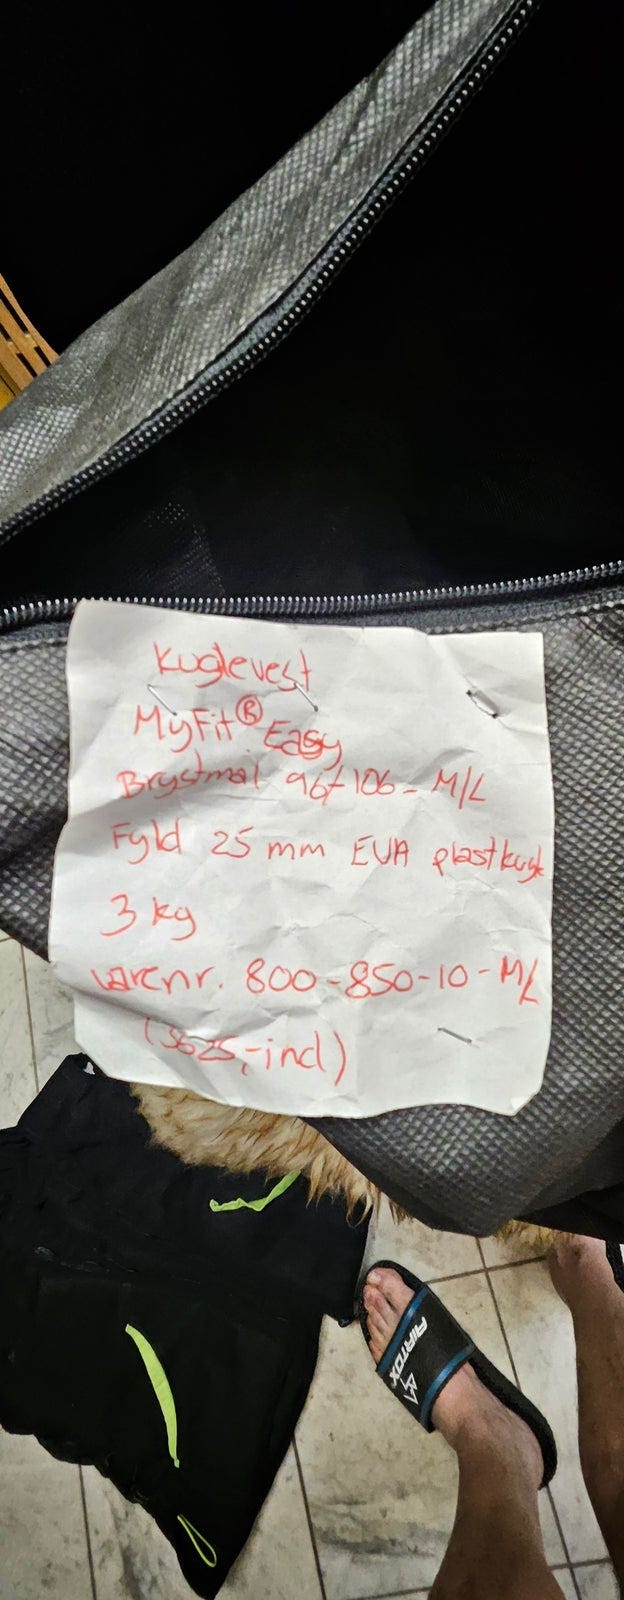 Kuglevest
MyFit® Easy
Brystmål 96/106- M/L
Fyld 25 mm EVA plastkugle
3 kg
varenr. 800-850-10-M/L
(3625,-incl)
AIRTOX